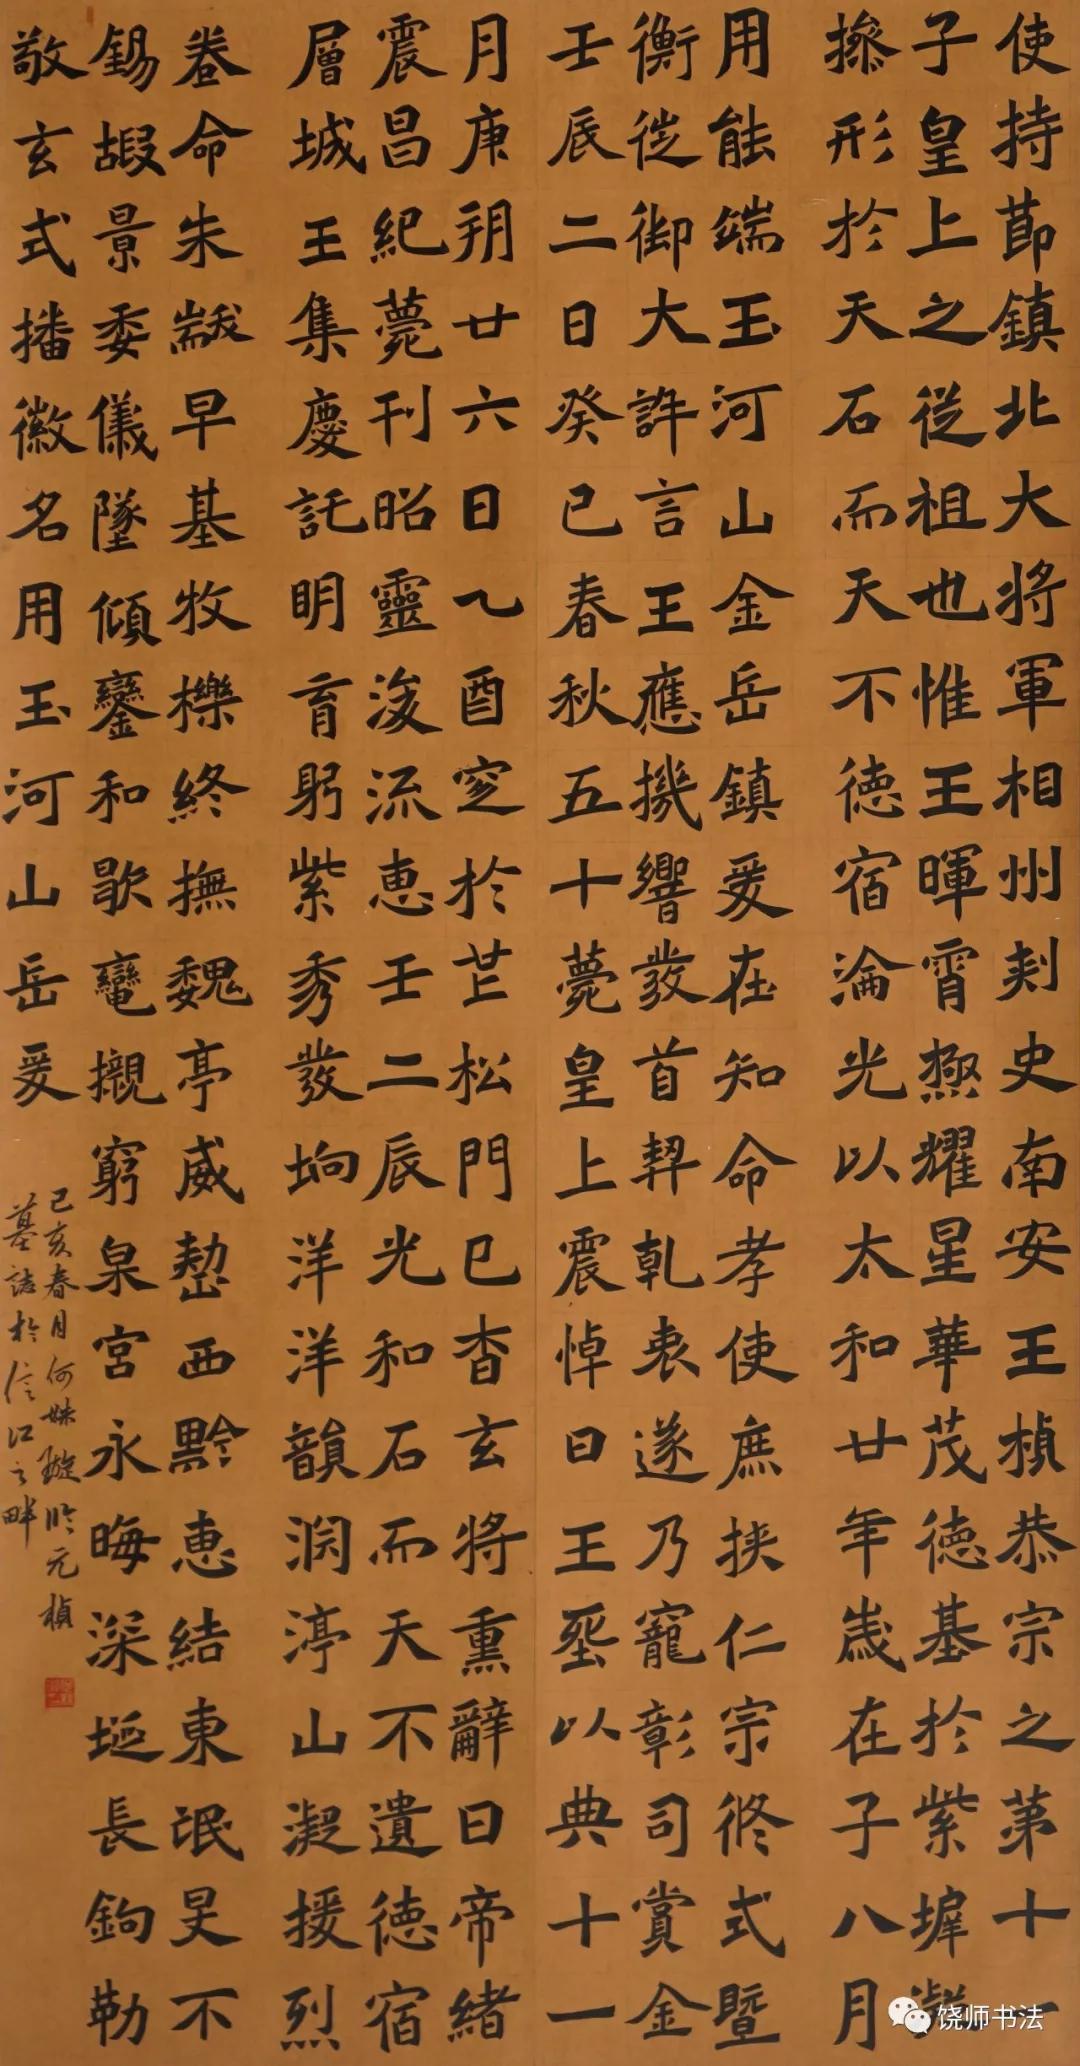 使持莭鎮北大將軍相州刾史南安王楨恭宗之苐十一
子皇上之從祖也惟王暉霄極耀星華茂德基於紫墀凝
操形於天石而天不德宿淪光以太和廿年歲在子八月
用能端玉河山金岳鎮爰在知命孝使庶挾仁宗終式暨
衡從御大許言王應機響發首契乾衷遂乃寵彰司賞金
壬辰二日癸巳春秋五十薨皇上震悼曰王丞以典十一
月庚朔廿六日乙酉窆於芒松門已杳玄將熏辭曰帝緒
震昌紀薨刊昭靈浚流惠壬二辰光和石而天不遺德宿
層城王集慶託明育躬紫秀發坰洋洋韻潤渟山凝援烈
卷命朱黻早基牧櫟終撫魏亭威慹西黔惠結東氓旻不
錫嘏景委儀墜傾鑾和歇鼉櫬窮泉宮永晦深埏長鉤勒
敬玄式播徽名用玉河山岳爰
己亥春月何姝璇臨元楨
墓誌於信江之畔
饶师书法